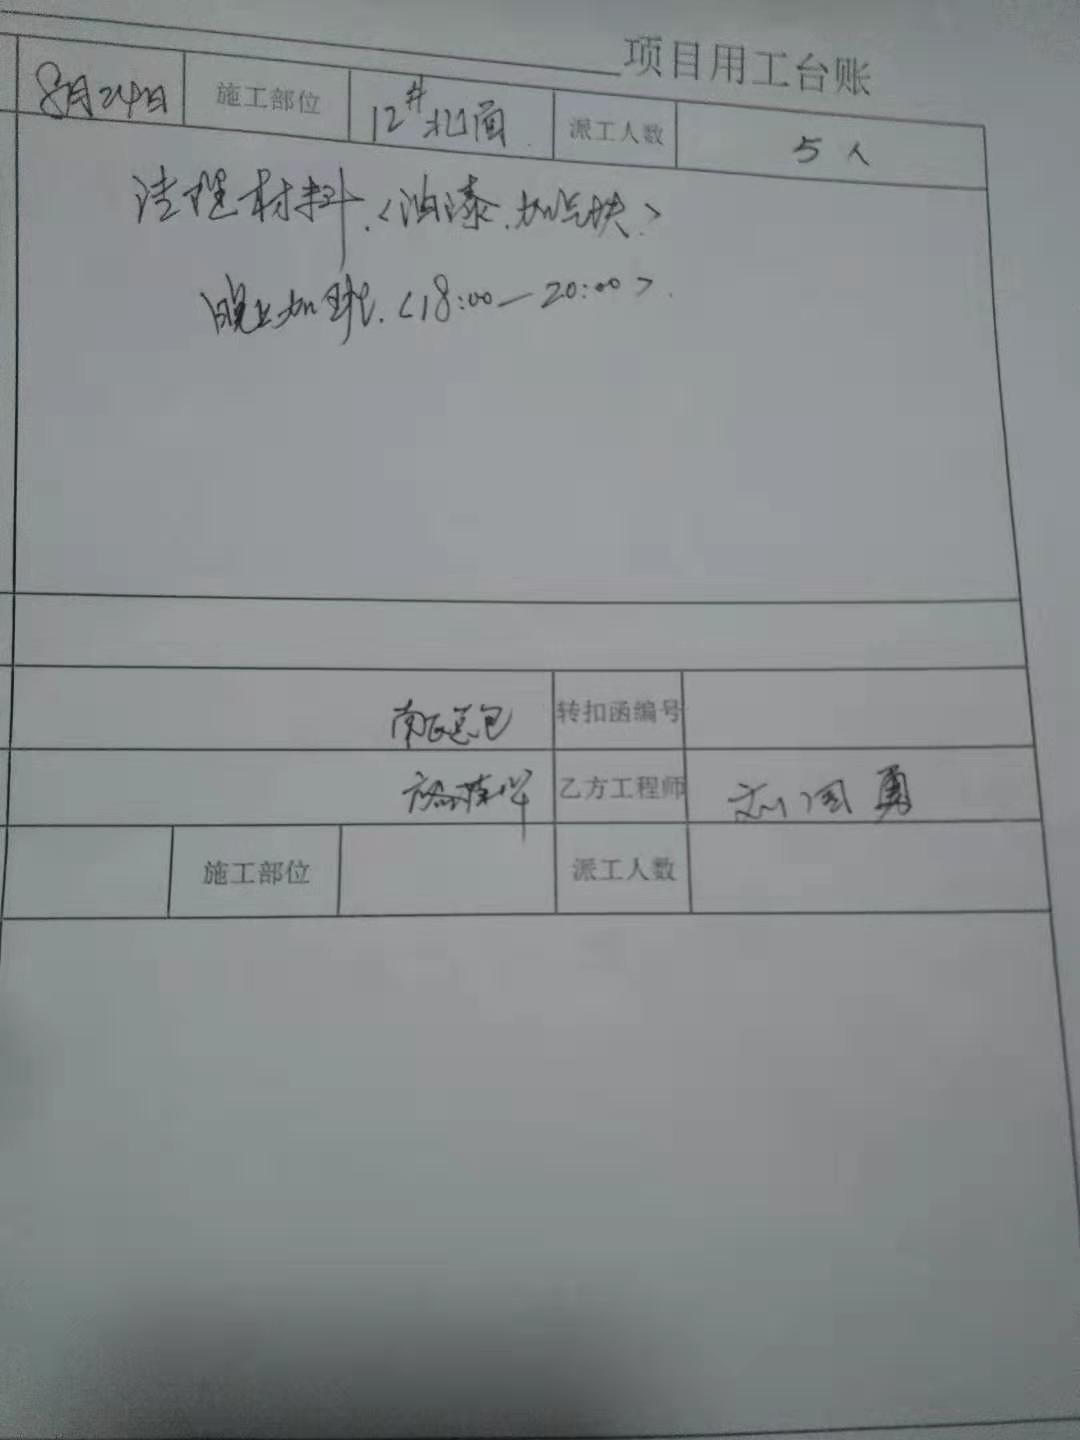 项目用工台账
8月24日 施工部位 12#北面 派工人数 5人
清理材料.<油漆.加气块.>
晚上加班.<18:00—20:00>.
总包 转扣函编号
乙方工程师 刘国勇
施工部位 派工人数